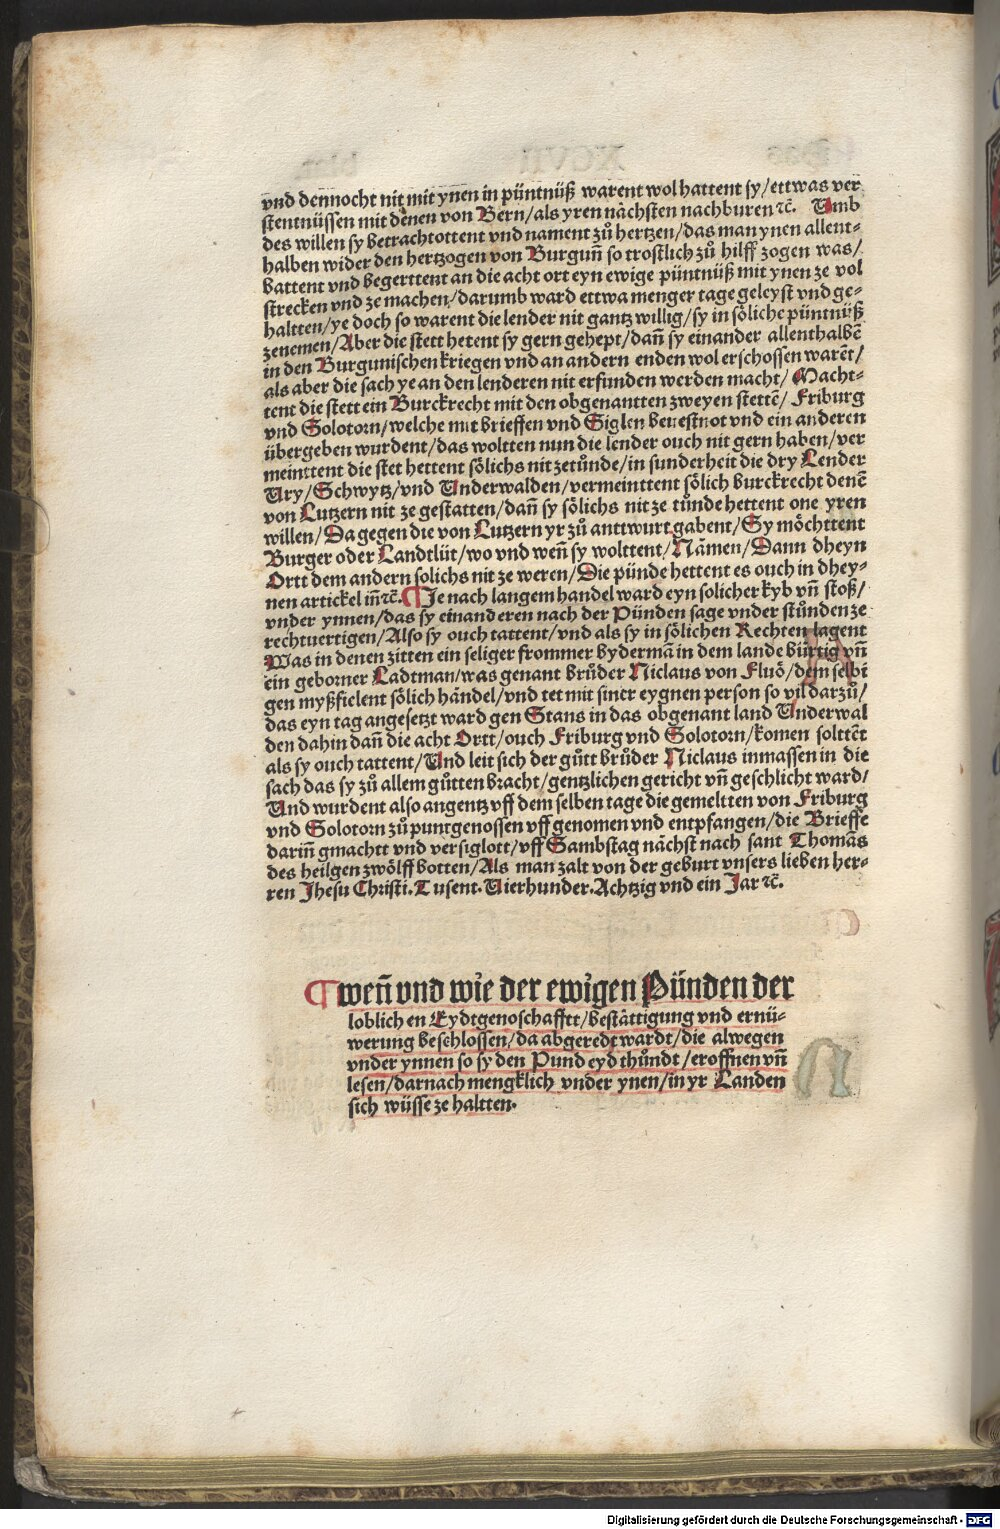 vnd dennocht nit mit ynen in püntnüß warent wol hattent sy/ettwas ver
stentnüssen mit denen von Bern/als yren nächsten nachburen ⁊c̃. Umb
des willen sy betrachtottent vnd nament zů hertzen/das man ynen allent⸗
halben wider den hertzogen von Burgun̄ so trostlich zů hilff zogen was/
battent vnd begerttent an die acht ort eyn ewige püntnüß mit ynen ze vol
strecken vnd ze machen/darumb ward ettwa menger tage geleyst vnd ge⸗
haltten/ye doch so warent die lender nit gantz willig/sy in söliche püntnüß
zenemen/Aber die stett hetent sy gern gehept/dan̄ sy einander allenthalbē
in den Burgunischen kriegen vnd an andern enden wol erschossen warēt/
als aber die sach ye an den lenderen nit erfunden werden macht/Macht⸗
tent die stett ein Burckrecht mit den obgenantten zweyen stettē/Friburg
vnd Solotorn/welche mit brieffen vnd Siglen beuestnot vnd ein anderen
übergeben wurdent/das woltten nun die lender ouch nit gern haben/ver
meinttent die stet hettent sölichs nit zetůnde/in sunderheit die dry Lender
Ury/Schwytz/vnd Underwalden/vermeinttent sölich burckrecht denē
von Lutzern nit ze gestatten/dan̄ sy sölichs nit ze tůnde hettent one yren
willen/Da gegen die von Lutzern yr zů anttwurt gabent/Sy möchttent
Burger oder Landtlüt/wo vnd wen̄ sy wolttent/Nämen/Dann dheyn
Ortt dem andern solichs nit ze weren/Die pünde hettent es ouch in dhey⸗
nen artickel in̄ ⁊c̃. ¶Je nach langem handel ward eyn solicher kyb vn̄ stoß/
vnder ynnen/das sy einanderen nach der Pünden sage vnder stůnden ze
rechtuertigen/Also sy ouch tattent/vnd als sy in sölichen Rechten lagent
Was in denen zitten ein seliger frommer bydermā in dem lande bürtig vn̄
ein geborner Ladtman/was genant brůder Niclaus von Fluö/dem selbi
gen myßfielent sölich händel/vnd tet mit siner eygnen person so vil darzů/
das eyn tag angesetzt ward gen Stans in das obgenant land Underwal
den dahin dan̄ die acht Ortt/ouch Friburg vnd Solotorn/komen solttēt
als sy ouch tattent/Und leit sich der gůtt brůder Niclaus inmassen in die
sach das sy zů allem gůtten bracht/gentzlichen gericht vn̄ geschlicht ward/
Und wurdent also angentz vff dem selben tage die gemeltten von Friburg
vnd Solotorn zů puntgenossen vff genomen vnd entpfangen/die Brieffe
darin̄ gmachtt vnd versiglott/vff Sambstag nächst nach sant Thomās
des heilgen zwölff botten/Als man zalt von der geburt vnsers lieben her⸗
ren Jhesu Christi. Tusent. Uierhunder. Achtzig vnd ein Jar ⁊c̃.
¶wen̄ vnd wie der ewigen Pünden der
loblichen Eydtgenoschafftt/bestättigung vnd ernü⸗
werung beschlossen/da abgeredt wardt/die alwegen
vnder ynnen so sy den Pund eyd thůndt/eroffnen vn̄
lesen/darnach mengklich vnder ynen/in yr Landen
sich wüsse ze haltten.
Digitalisierung gefördert durch die Deutsche Forschungsgemeinschaft - DFG